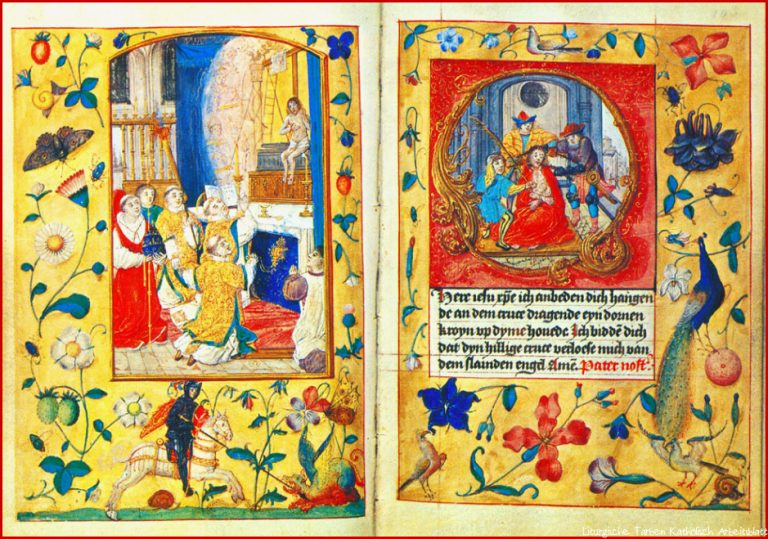 Here iesu xp̄e ich anbeden dich hangen
de an dem cruce dragende eyn dornen
kroyn vp dyme houede. Ich biddē dich
dat dyn hillige cruce verloese mich van
dem slainden engel Amē. Pater nost.
Liturgische Farben Katholisch Arbeitsblatt